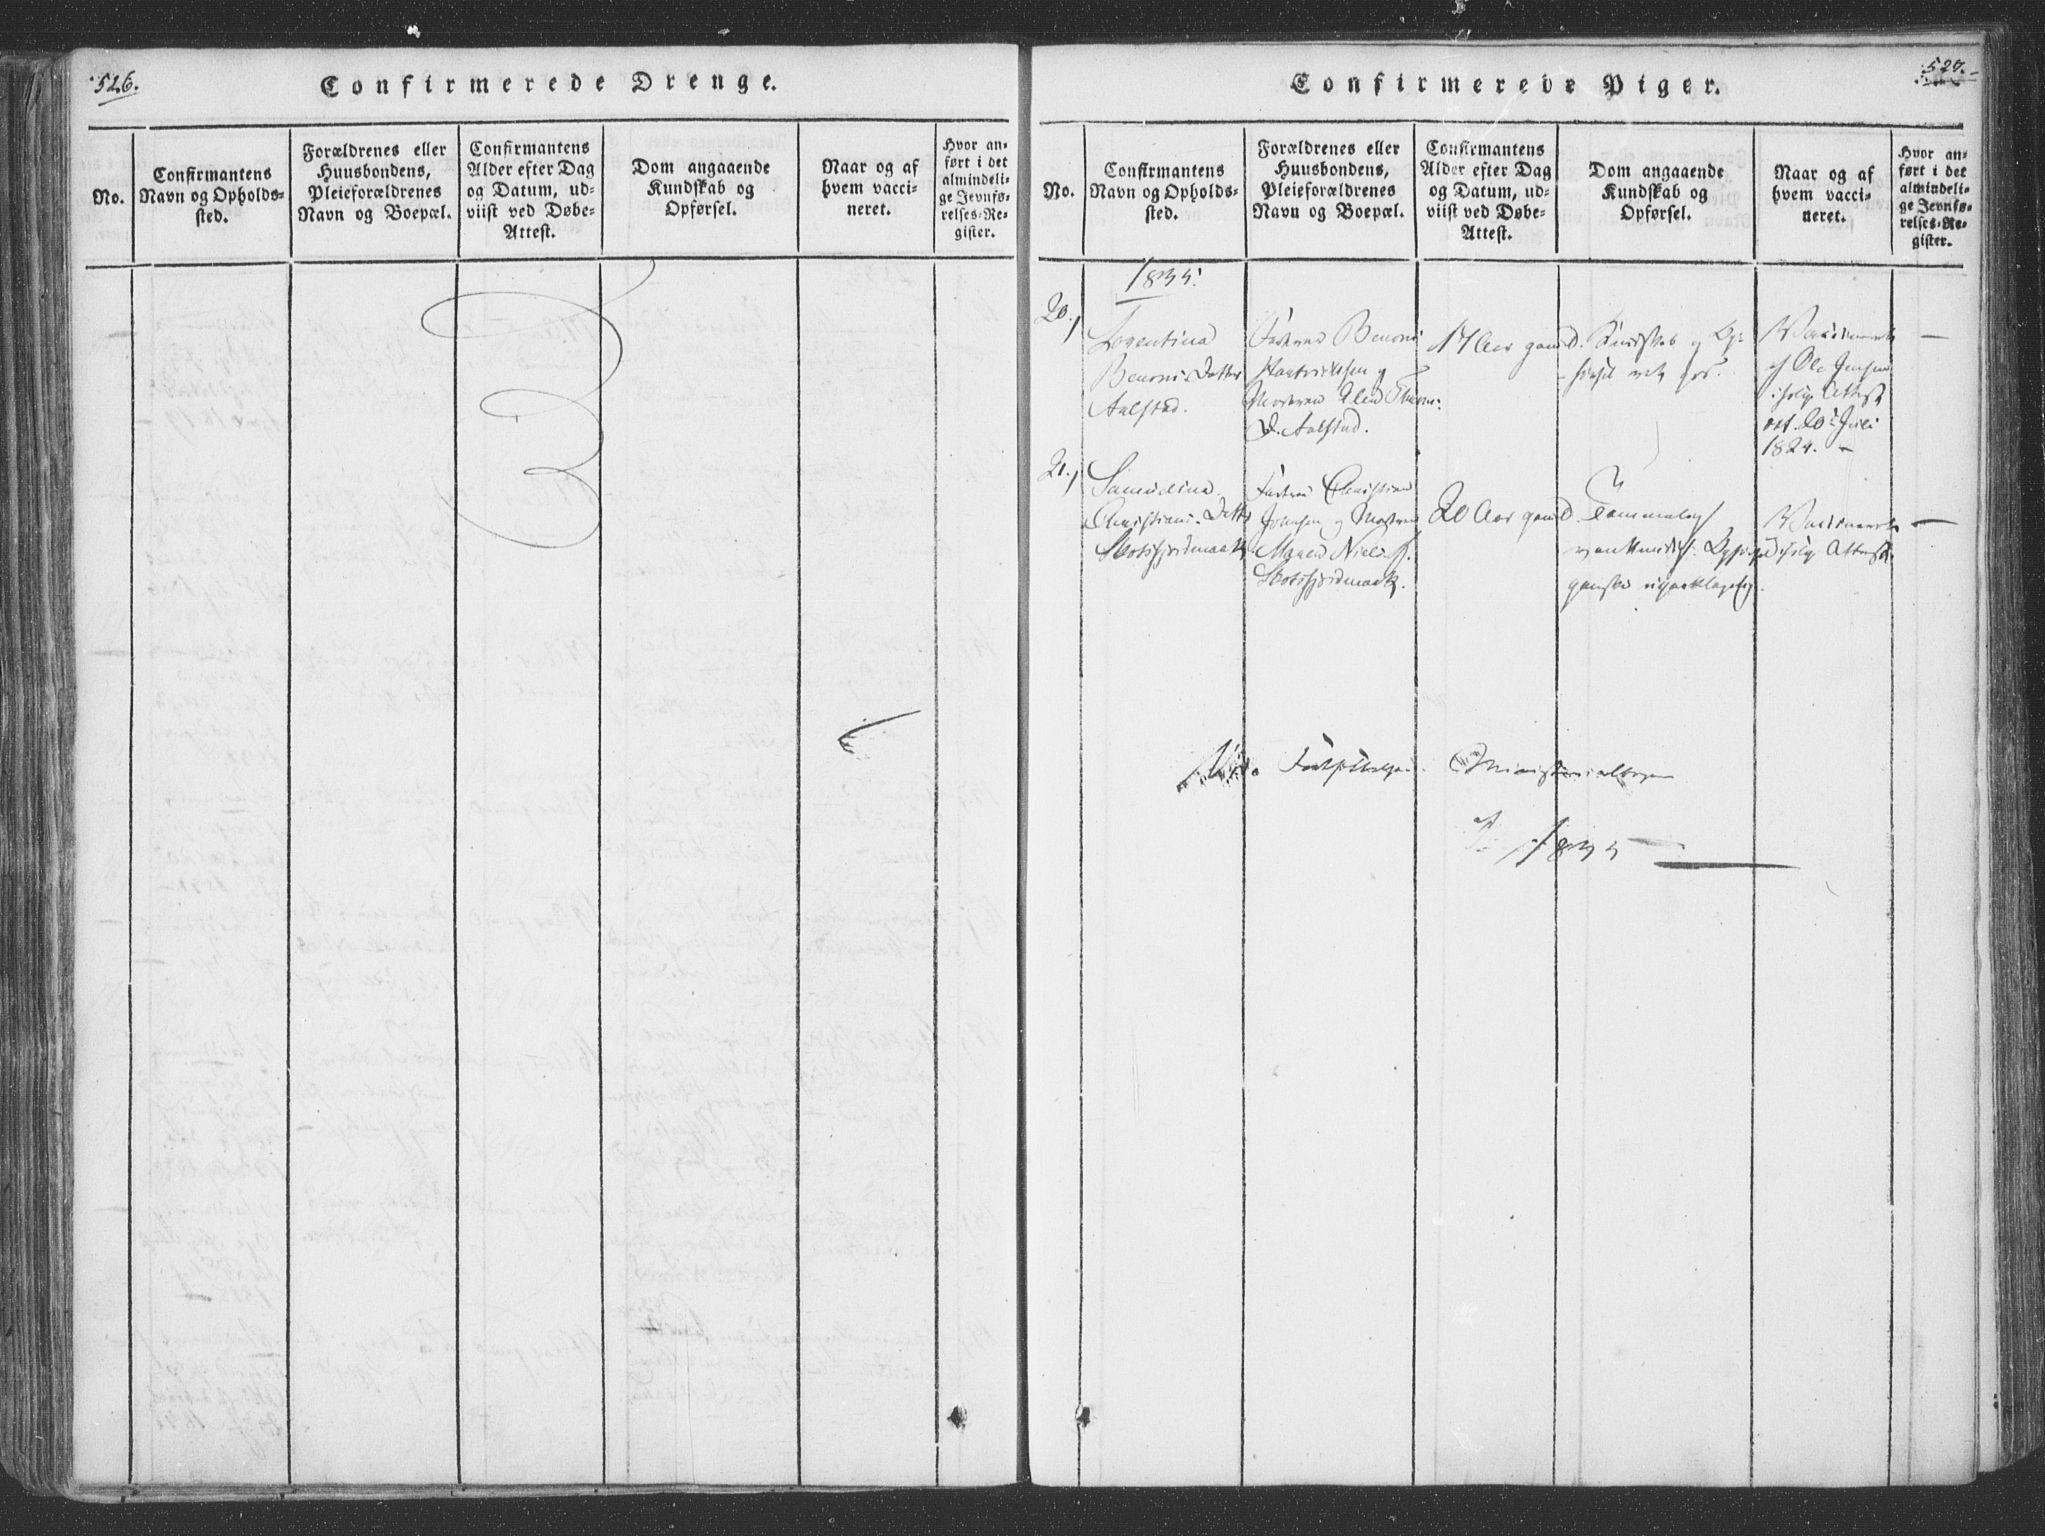 526.
Confirmerede Drenge.
No.
Confirmantens
Navn og Opholds-
sted.
Forældrenes eller
Huusbondens,
Pleieforældrenes
Navn og Boepæl.
Confirmantens
Alder efter Dag
og Datum, ud-
viist ved Døbe-
Attest.
Dom angaaende
Kundskab og
Opførsel.
Naar og af
hvem vacci-
neret.
Hvor an-
ført i det
almindeli-
ge Jevnfø-
relses-Re-
gister.
527.
Confirmerede Piger.
No.
Confirmantens
Navn og Opholds-
sted.
Forældrenes eller
Huusbondens,
Pleieforældrenes
Navn og Boepæl.
Confirmantens
Alder efter Dag
og Datum, ud-
viist ved Døbe-
Attest.
Dom angaaende
Kundskab og
Opførsel.
Naar og af
hvem vacci-
neret.
Hvor an-
ført i det
almindeli-
ge Jevnfø-
relses-Re-
gister.
1835.
20.,
Lorentina
Benonis Datter
Aalstad.
Faderen Benoni
og
Moderen
D. Aalstad.
17 Aar gaml.
Kundskab og Op-
førsel
Vaccineret
af Ole Jensen
ifølge Attest
20 Juli
1824. –
–
21.,
Christians. Datter
Skotsfjordmark
Faderen Christian
Johnsen og Moderen
Maren Niels
Skotsfjordmark.
20 Aar gaml.
Kundsk. Opførsel
ganske upaaklagelig
Vaccineret
ifølge Attest.
–
Ministerialbogen
1835